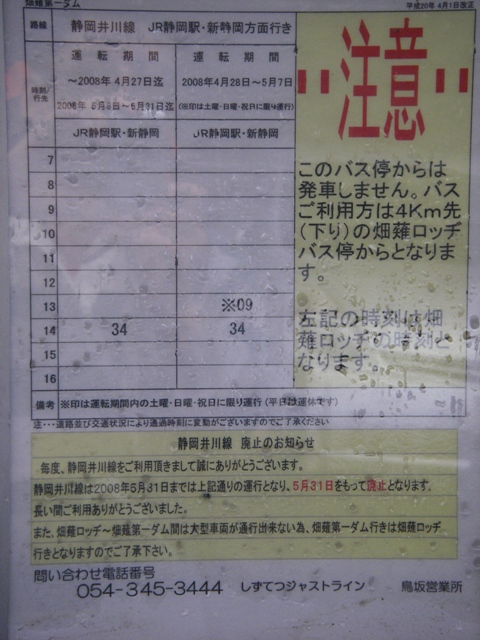 畑薙第一ダム
平成20年 4月1日改正
路線 静岡井川線 JR静岡駅・新静岡方面行き
時刻/行先
運転期間 運転期間
～2008年 4月27日迄 2008年 4月28日～5月7日
2008年 5月8日～5月31日迄 (※印は土曜・日曜・祝日に限り運行)
JR静岡駅・新静岡 JR静岡駅・新静岡
7
8
9
10
11
12
13 ※09
14 34 34
15
16
備考 ※印は運転期間内の土曜・日曜・祝日に限り運行 (平日は運休です)
注・・・道路並び交通状況により通過時刻に変動がございますのでご了承ください
"注意"
このバス停からは
発車しません。バス
ご利用方は4Km先
(下り)の畑薙ロッヂ
バス停からとなりま
す。
左記の時刻は畑
薙ロッヂの時刻と
なります。
静岡井川線 廃止のお知らせ
毎度、静岡井川線をご利用頂きまして誠にありがとうございます。
静岡井川線は2008年5月31日までは上記通りの運行となり、5月31日をもって廃止となります。
長い間ご利用ありがとうございました。
また、畑薙ロッヂ～畑薙第一ダム間は大型車両が通行出来ない為、畑薙第一ダム行きは畑薙ロッヂ
行きとなりますのでご了承下さい。
問い合わせ電話番号
054-345-3444 しずてつジャストライン 鳥坂営業所